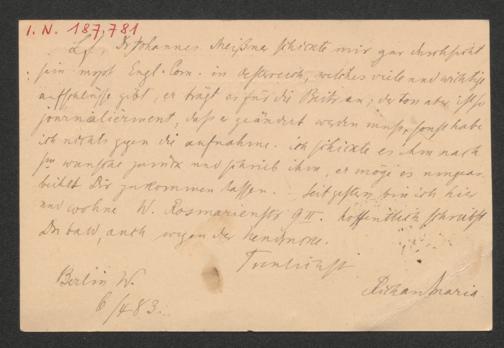 I. N. 187,781
Lf. Dr Johannes Meißner schickte mir zur durchsicht
sein mspt Engl. Com. in Oesterreich, welches viele und wichtige
aufschlüße gibt, er trägt es für die Beitr. an; der ton aber ist so
journalisierend, daß er geändert werden muss, sonst habe
ich nichts gegen die aufnahme. ich schickte es ihm nach
wunsche zurück und schrieb ihm, er möge es umgear-
beitet Dir zukommen lassen. Seit gestern bin ich hier
und wohne W. Rosmarienstr 9 II. hoffentlich schreibst
Du bald, auch wegen der
Treulichst
RichardMaria
Berlin W.
6/4 83.